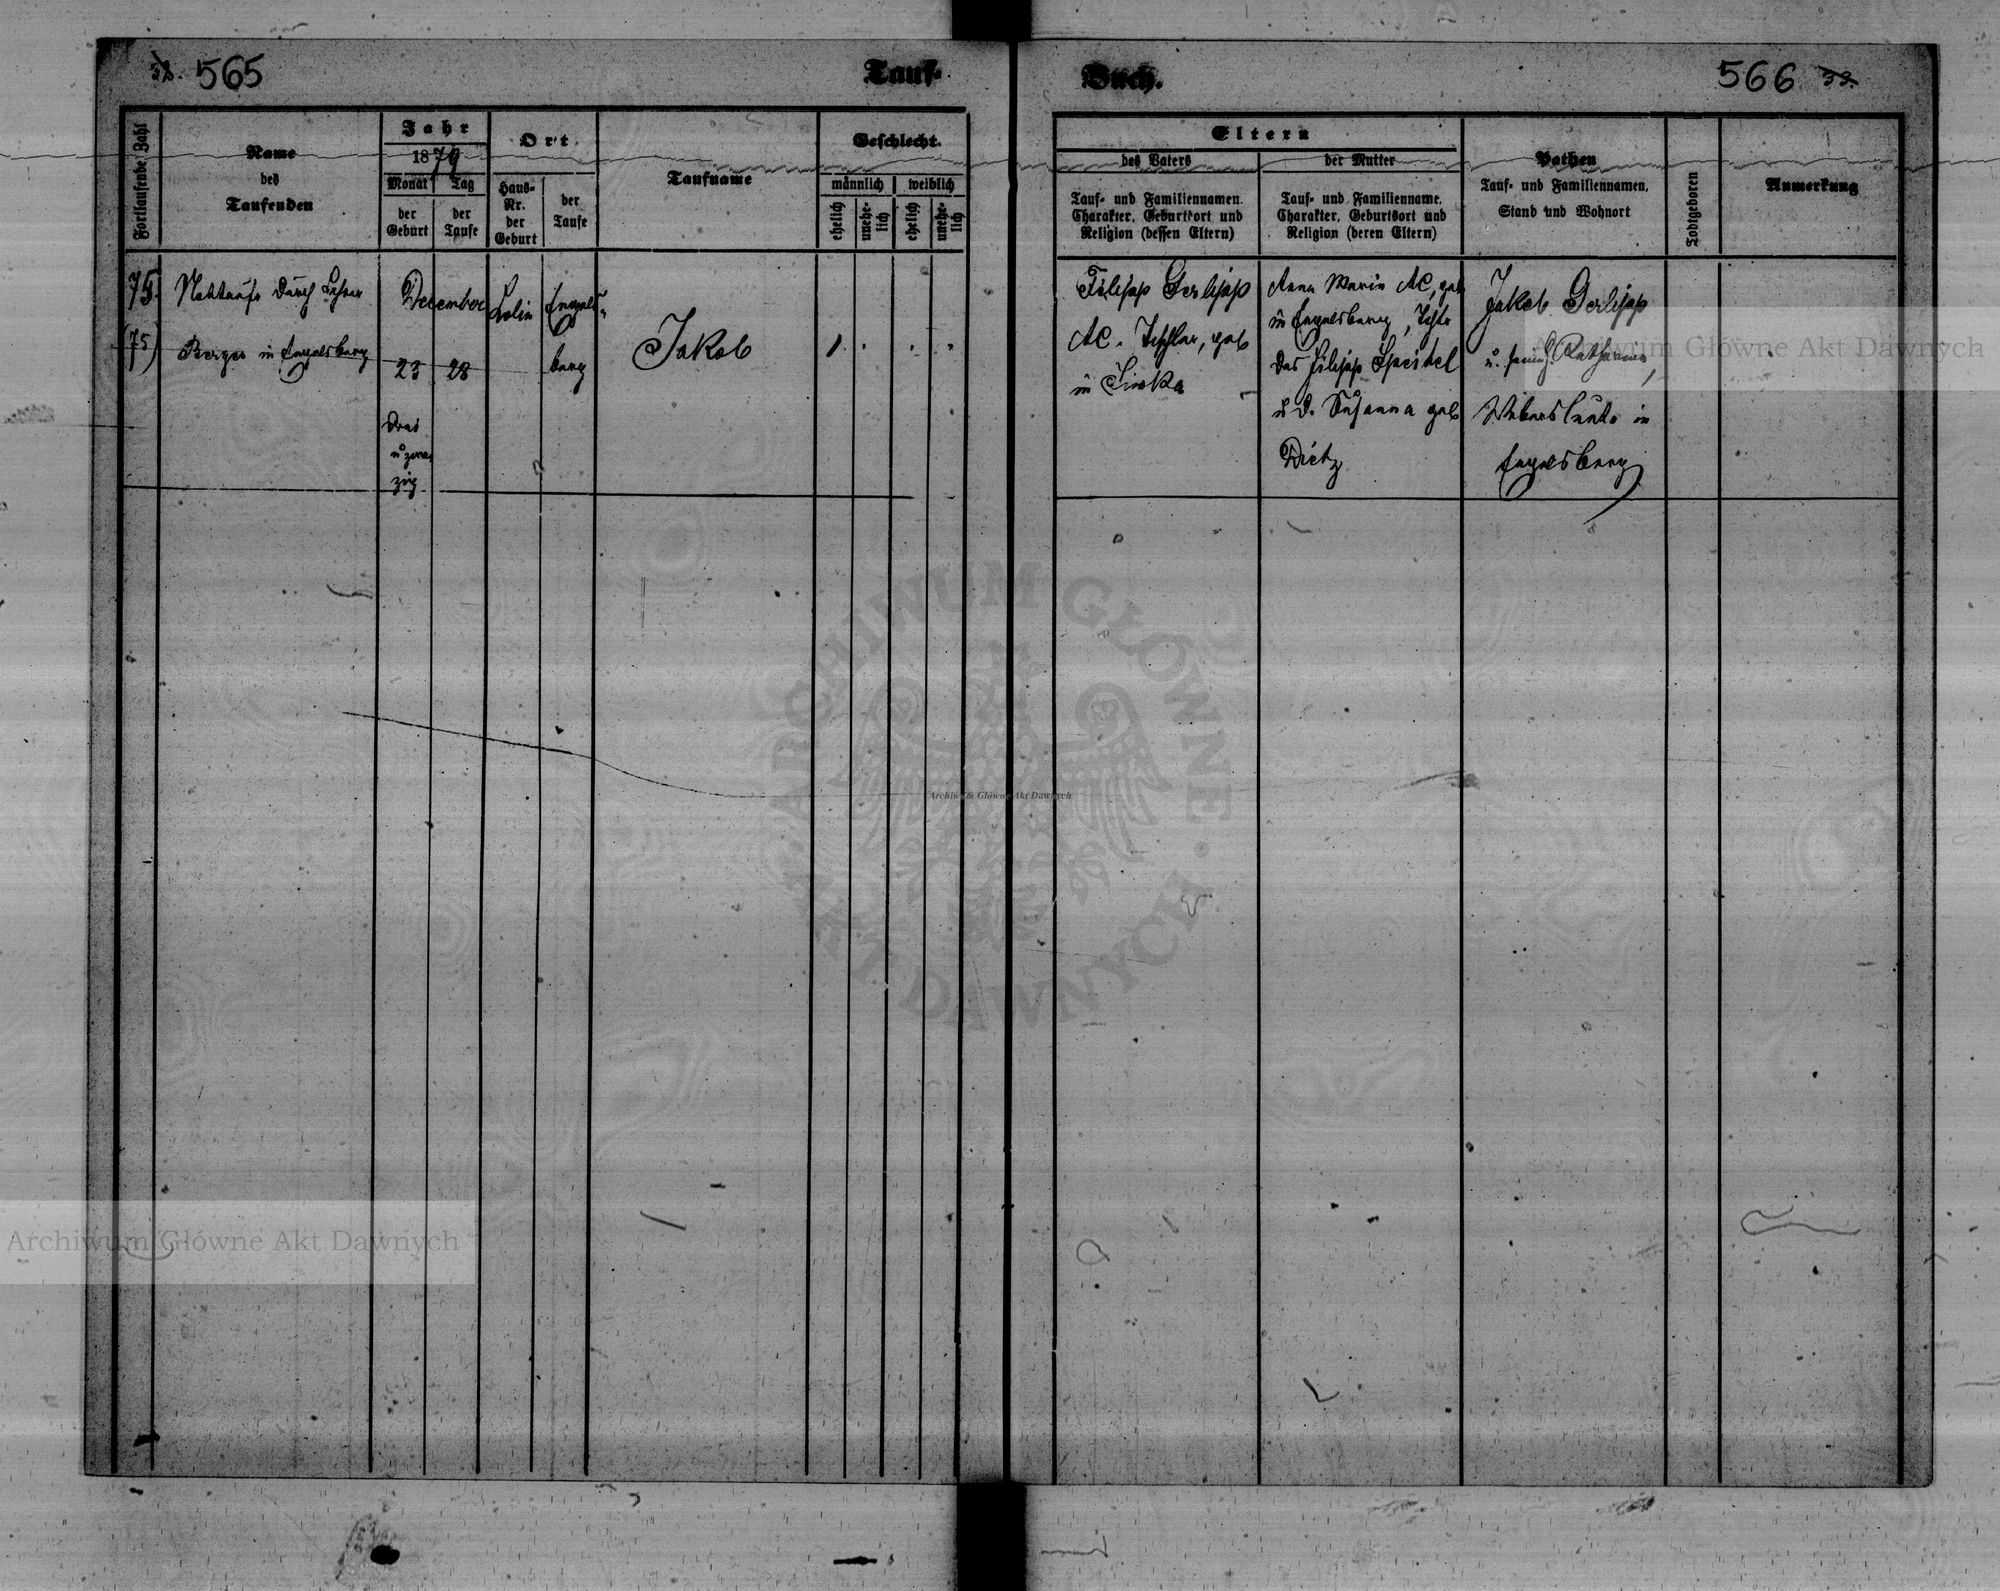 58. 565
Tauf-
Buch.
566 59.
Fortlaufende Zahl
Name
des
Taufenden
Jahr
1879
Monat Tag
der Geburt
der Taufe
Ort
Haus-Nr. der Geburt
der Taufe
Taufname
Geschlecht.
männlich weiblich
ehelich unehe-lich ehelich unehe-lich
Eltern
des Vaters
der Mutter
Tauf- und Familiennamen.
Charakter, Geburtsort und
Religion (dessen Eltern)
Tauf- und Familienname.
Charakter, Geburtsort und
Religion (deren Eltern)
Pathen
Tauf- und Familiennamen,
Stand und Wohnort
Todtgeboren
Anmerkung
75.
(75)
Nottaufe durch Lehrer
Berger in Engelsberg
December
23 28
Drei
u zwan
zig
Engels-
berg
Jakob
1 . . .
Filipp Gerlipp
AC. Tischler, geb
in
Anna Maria AC, geb
in Engelsberg, Tchtr
des Filipp Speidel
u d. Susanna geb
Dietz
Jakob Gerlipp
u. Katharina,
Webersleute in
Engelsberg
Archiwum Główne Akt Dawnych
ARCHIWUM GŁÓWNE AKT DAWNYCH
Archiwum Główne Akt Dawnych
Archiwum Główne Akt Dawnych